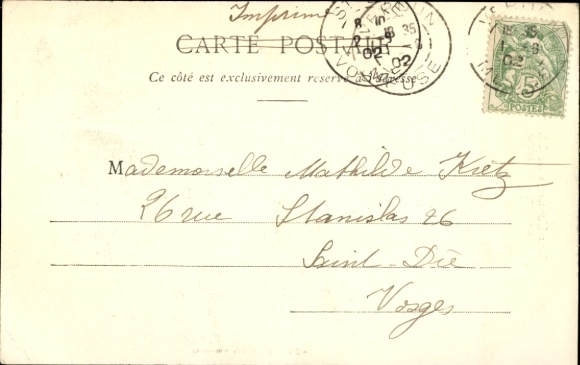 Imprimé
CARTE POSTALE
Ce côté est exclusivement réservé à l'adresse
5
POSTES
Mademoiselle Mathilde Kretz
26 rue Stanislas 26
Saint-Dié
Vosges